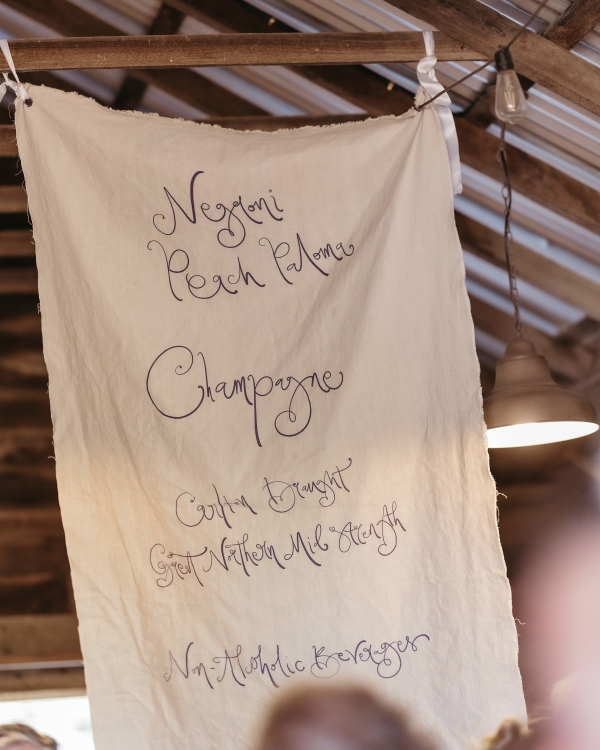 Negroni
Peach Paloma
Champagne
Carlton Draught
Great Northern Mid Strength
Non-Alcoholic Beverages